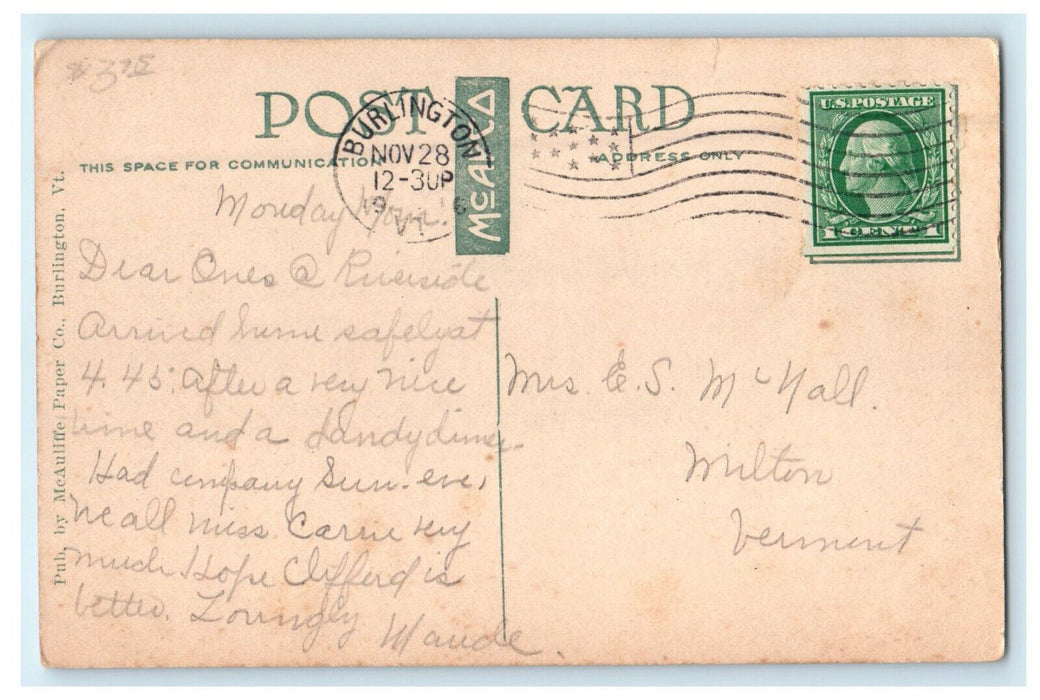 $3.75
POST CARD
McAULA
THIS SPACE FOR COMMUNICATION
ADDRESS ONLY
BURLINGTON
NOV 28
12-30P
VT.
U.S. POSTAGE
1 CENT 1
Pub. by McAuliffe Paper Co., Burlington, Vt.
Monday Morn.
Dear Ones @ Riverside
Arrived home safely at
4.45. after a very nice
time and a dandy diner.
Had company Sun. eve,
We all miss Carrie very
much Hope Clifferd is
better. Lovingly
Maude.
Mrs. E. S. McNall.
Milton
Vermont